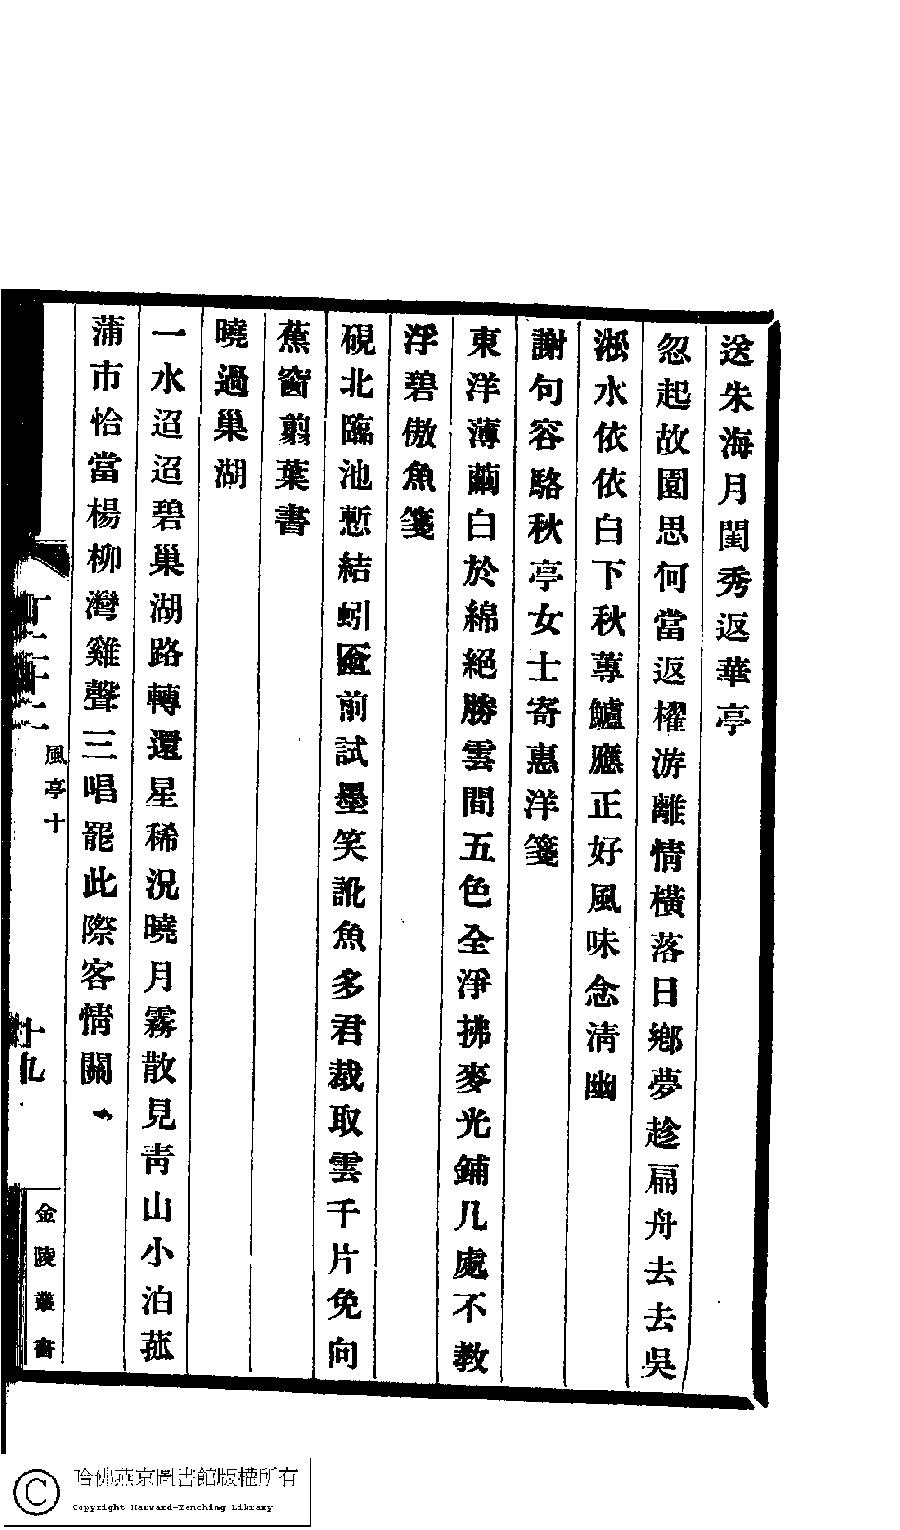 送朱海月閨秀返華亭
忽起故園思何當返櫂游離情橫落日鄉夢趁扁舟去去吳
淞水依依白下秋蓴鱸應正好風味念清幽
謝句容駱秋亭女士寄惠洋箋
東洋薄繭白於綿絕勝雲間五色全淨拂麥光鋪几處不教
浮碧傲魚箋
硯北臨池慙結蚓匳前試墨笑訛魚多君裁取雲千片免向
蕉窗剪葉書
曉過巢湖
一水迢迢碧巢湖路轉還星稀況曉月霧散見靑山小泊菰
蒲市恰當楊柳灣雞聲三唱罷此際客情關
風亭十
十九
金陵叢書
哈佛燕京圖書館版權所有
Copyright Harvard-Yenching Library